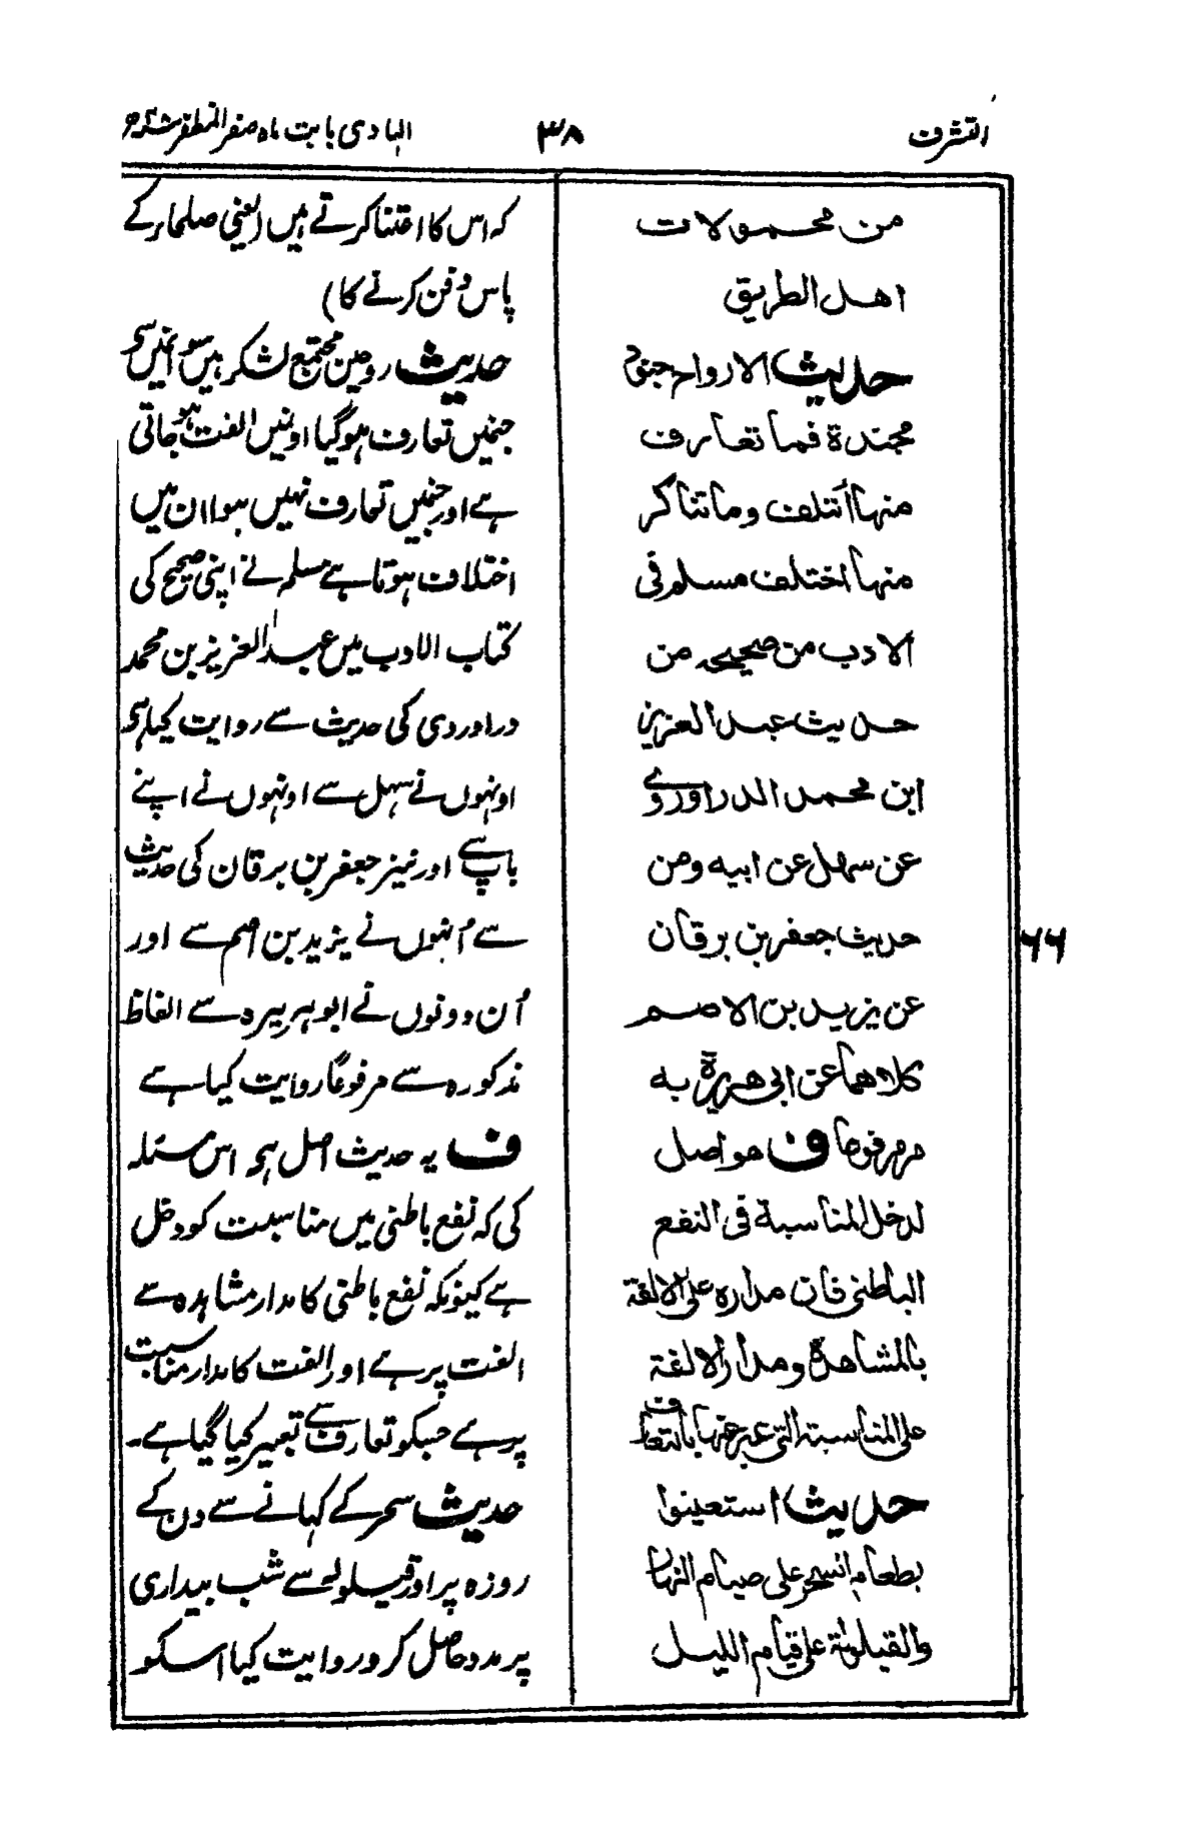 التشرف
٣٨
الہادی بابت ماہ صفر المظفر
من محمولات
اهل الطريق
حديث الارواح جنود
مجندة فما تعارف
منها أئتلف وما تناكر
منها اختلف مسلم فى
الادب من صحيحه من
حديث عبد العزيز
ابن محمد الدراوردى
عن سهل عن ابيه ومن
حديث جعفر بن برقان
عن يزيد بن الاصم
كلاهما عن ابى هريرة به
مرفوعا ف هو اصل
لدخل المناسبة فى النفع
الباطنى فان مداره على الالفة
بالمشاهدة ومدار الالفة
على المناسبة التى عبر عنها بالتعارف
حديث استعينوا
بطعام السحر على صيام النهار
والقيلولة على قيام الليل
۶۶
کہ اس کا اعتنا کرتے ہیں (یعنی صلحاء کے
پاس دفن کرنے کا)
حدیث روحیں مجتمع لشکر ہیں سو انمیں سے
جنمیں تعارف ہوگیا اونمیں الفت ہو جاتی
ہے اور جنمیں تعارف نہیں ہوا ان میں
اختلاف ہوتا ہے مسلم نے اپنی صحیح کی
کتاب الادب میں عبد العزیز بن محمد
دراوردی کی حدیث سے روایت کیا ہے
اونہوں نے سہل سے اونہوں نے اپنے
باپ سے اور نیز جعفر بن برقان کی حدیث
سے اُنہوں نے یزید بن اصم سے اور
اُن دونوں نے ابو ہریرہ سے الفاظ
مذکورہ سے مرفوعًا روایت کیا ہے
ف یہ حدیث اصل ہے اس مسئلہ
کی کہ نفع باطنی میں مناسبت کو دخل
ہے کیونکہ نفع باطنی کا مدار مشاہدہ سے
الفت پر ہے اور الفت کا مدار مناسبت
پر ہے جسکو تعارف سے تعبیر کیا گیا ہے۔
حدیث سحر کے کہانے سے دن کے
روزہ پر اور قیلولہ سے شب بیداری
پر مدد حاصل کرو روایت کیا اسکو